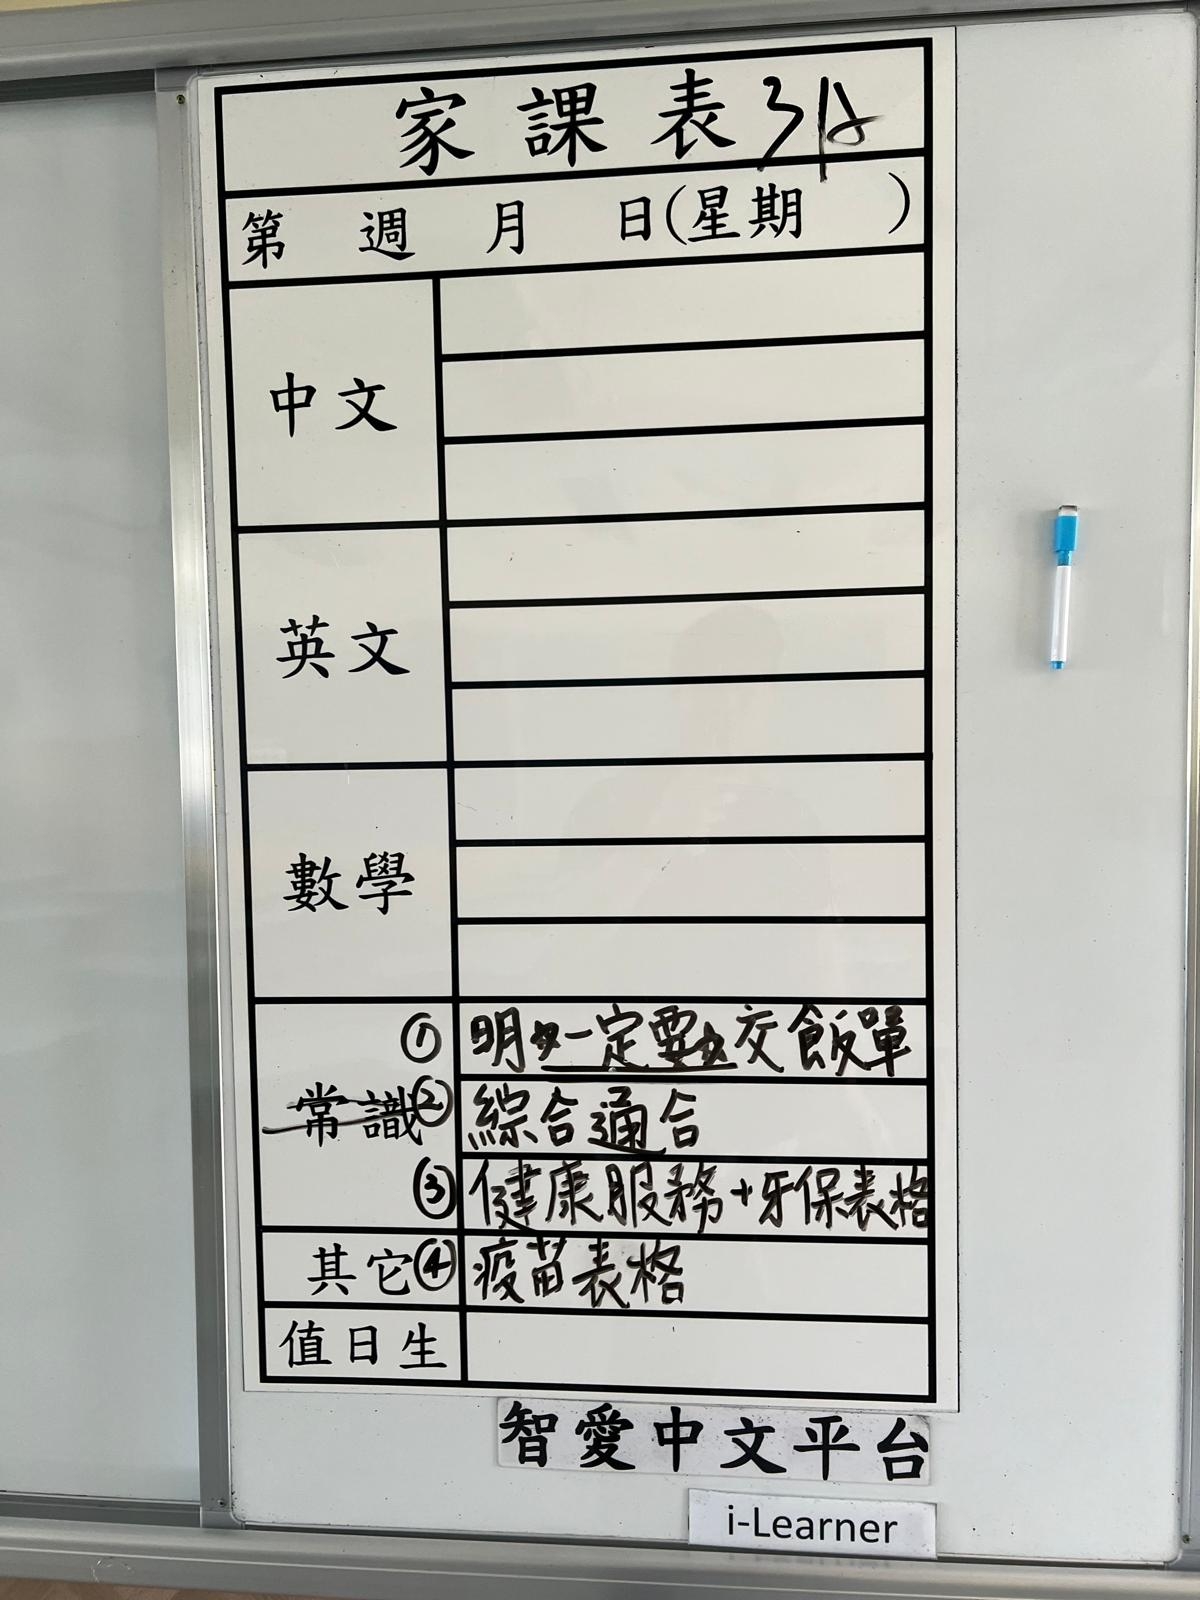 家課表 3A
第 週 月 日(星期 )
中文
英文
數學
常識
① 明一定要交飯單
② 綜合通合
③ 健康服務+牙保表格
其它 ④ 疫苗表格
值日生
智愛中文平台
i-Learner